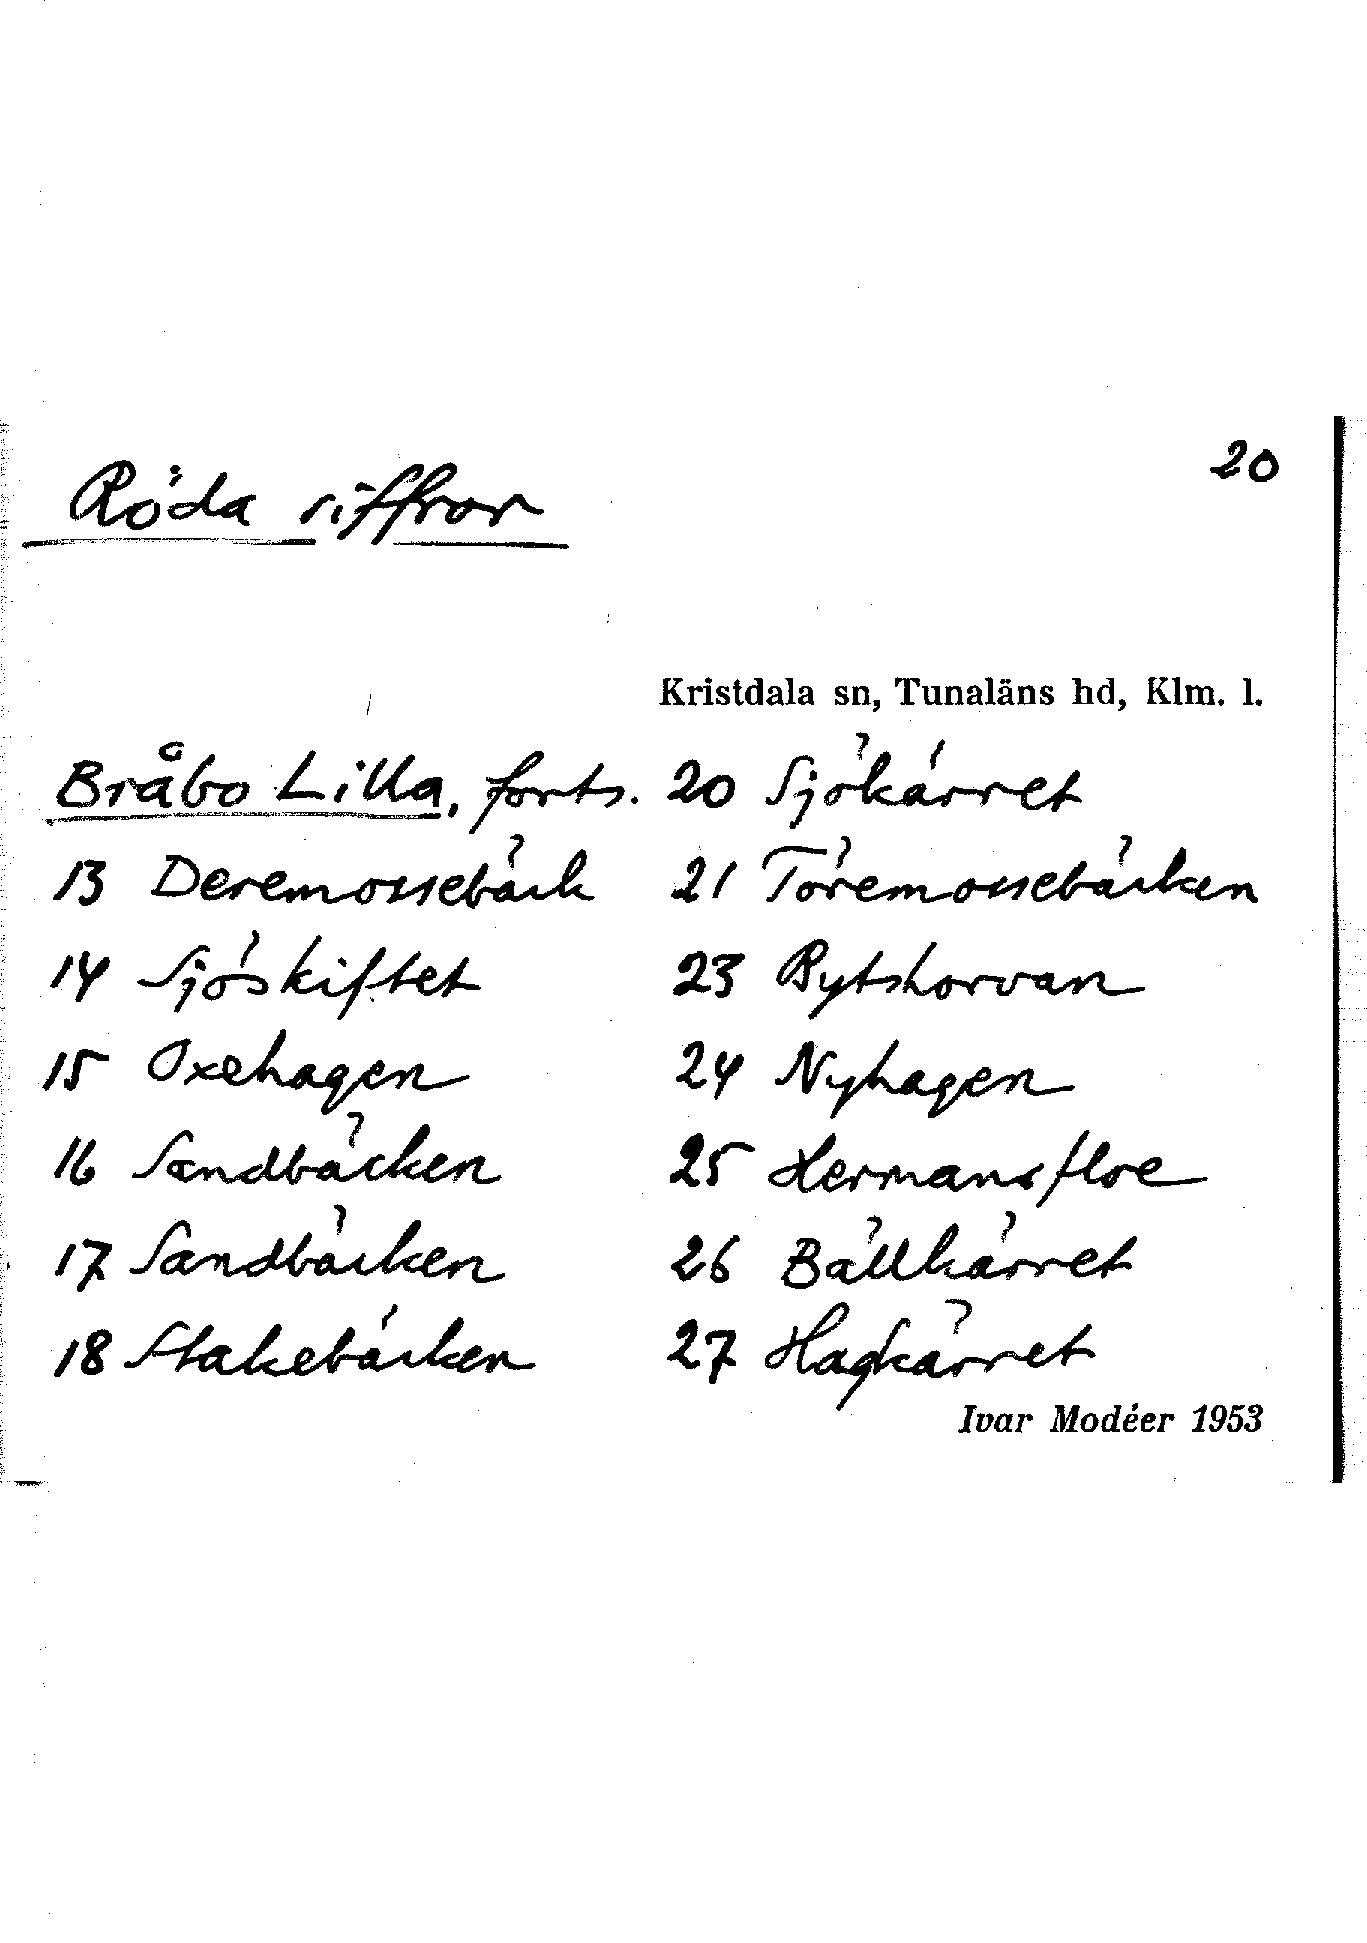 20
Röda siffror
Kristdala sn, Tunaläns hd, Klm. l.
Bråbo Lilla, forts.
13 Deremossebäck
14 Sjöskiftet
15 Oxehagen
16 Sandbäcken
17 Sandbäcken
18 Stakebäcken
20 Sjökärret
21 Töremossebäcken
23 Bytshorvan
24 Nyhagen
25 Hermansfloe
26 Bällkärret
27 Hagkärret
Ivar Modéer 1953